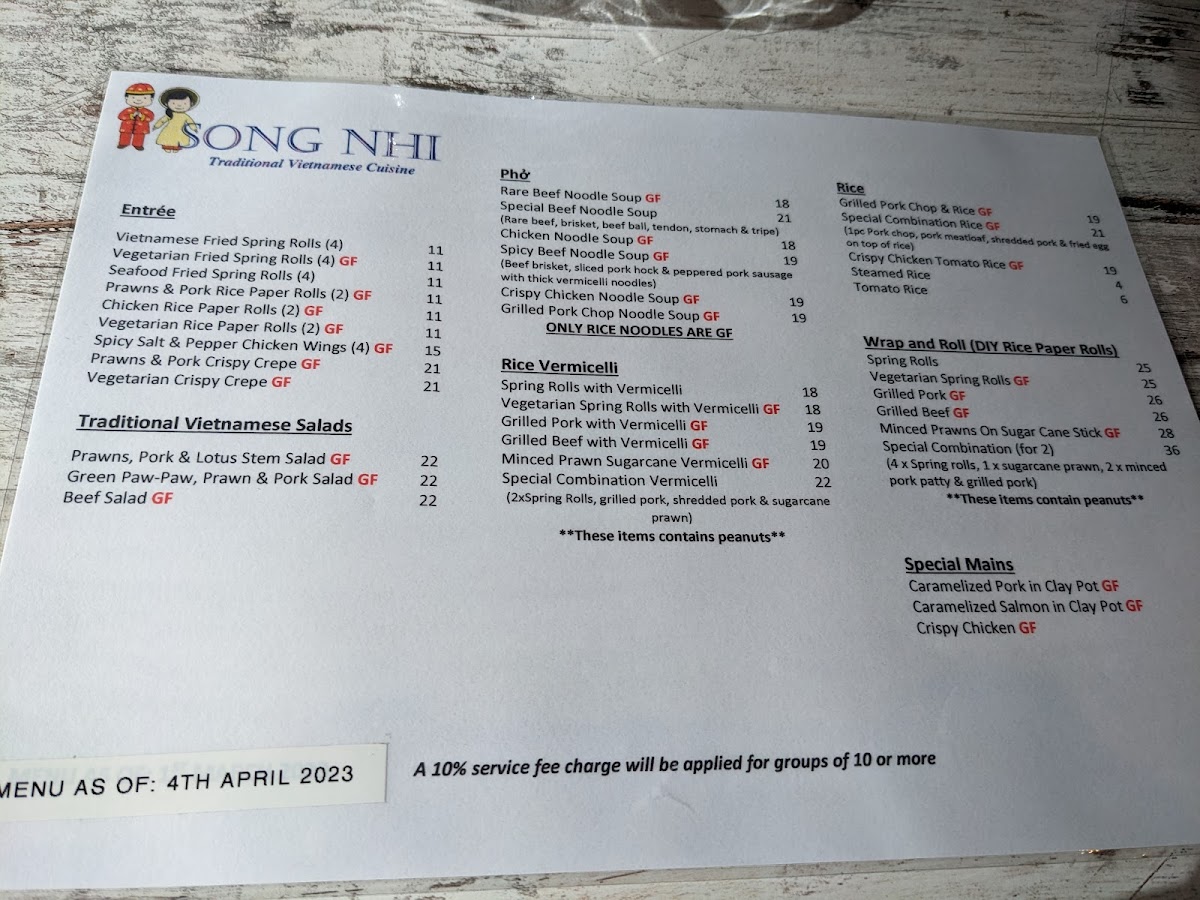 SONG NHI
Traditional Vietnamese Cuisine
Entrée
Vietnamese Fried Spring Rolls (4) 11
Vegetarian Fried Spring Rolls (4) GF 11
Seafood Fried Spring Rolls (4) 11
Prawns & Pork Rice Paper Rolls (2) GF 11
Chicken Rice Paper Rolls (2) GF 11
Vegetarian Rice Paper Rolls (2) GF 11
Spicy Salt & Pepper Chicken Wings (4) GF 15
Prawns & Pork Crispy Crepe GF 21
Vegetarian Crispy Crepe GF 21
Traditional Vietnamese Salads
Prawns, Pork & Lotus Stem Salad GF 22
Green Paw-Paw, Prawn & Pork Salad GF 22
Beef Salad GF 22
Phở
Rare Beef Noodle Soup GF 18
Special Beef Noodle Soup 21
(Rare beef, brisket, beef ball, tendon, stomach & tripe)
Chicken Noodle Soup GF 18
Spicy Beef Noodle Soup GF 19
(Beef brisket, sliced pork hock & peppered pork sausage
with thick vermicelli noodles)
Crispy Chicken Noodle Soup GF 19
Grilled Pork Chop Noodle Soup GF 19
ONLY RICE NOODLES ARE GF
Rice Vermicelli
Spring Rolls with Vermicelli 18
Vegetarian Spring Rolls with Vermicelli GF 18
Grilled Pork with Vermicelli GF 19
Grilled Beef with Vermicelli GF 19
Minced Prawn Sugarcane Vermicelli GF 20
Special Combination Vermicelli 22
(2xSpring Rolls, grilled pork, shredded pork & sugarcane
prawn)
**These items contains peanuts**
Rice
Grilled Pork Chop & Rice GF 19
Special Combination Rice GF 21
(1pc Pork chop, pork meatloaf, shredded pork & fried egg
on top of rice)
Crispy Chicken Tomato Rice GF 19
Steamed Rice 4
Tomato Rice 6
Wrap and Roll (DIY Rice Paper Rolls)
Spring Rolls 25
Vegetarian Spring Rolls GF 25
Grilled Pork GF 26
Grilled Beef GF 26
Minced Prawns On Sugar Cane Stick GF 28
Special Combination (for 2) 36
(4 x Spring rolls, 1 x sugarcane prawn, 2 x minced
pork patty & grilled pork)
**These items contain peanuts**
Special Mains
Caramelized Pork in Clay Pot GF
Caramelized Salmon in Clay Pot GF
Crispy Chicken GF
MENU AS OF: 4TH APRIL 2023
A 10% service fee charge will be applied for groups of 10 or more